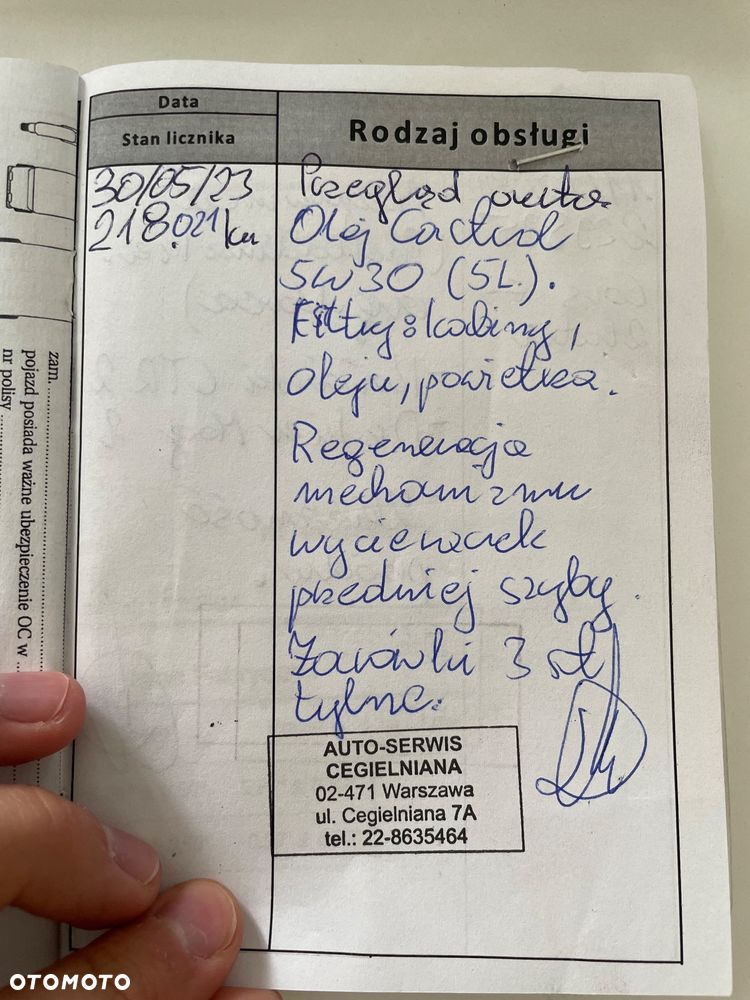 zam.
pojazd posiada ważne ubezpieczenie OC w
nr polisy
Data
Stan licznika
Rodzaj obsługi
30/05/23
218.021 km
Przegląd auta
Olej Castrol
5W30 (5L).
Filtry: kabiny,
oleju, powietrza.
Regeneracja
mechanizmu
wycieraczek
przedniej szyby.
Żarówki 3 szt
tylne.
AUTO-SERWIS
CEGIELNIANA
02-471 Warszawa
ul. Cegielniana 7A
tel.: 22-8635464
OTOMOTO